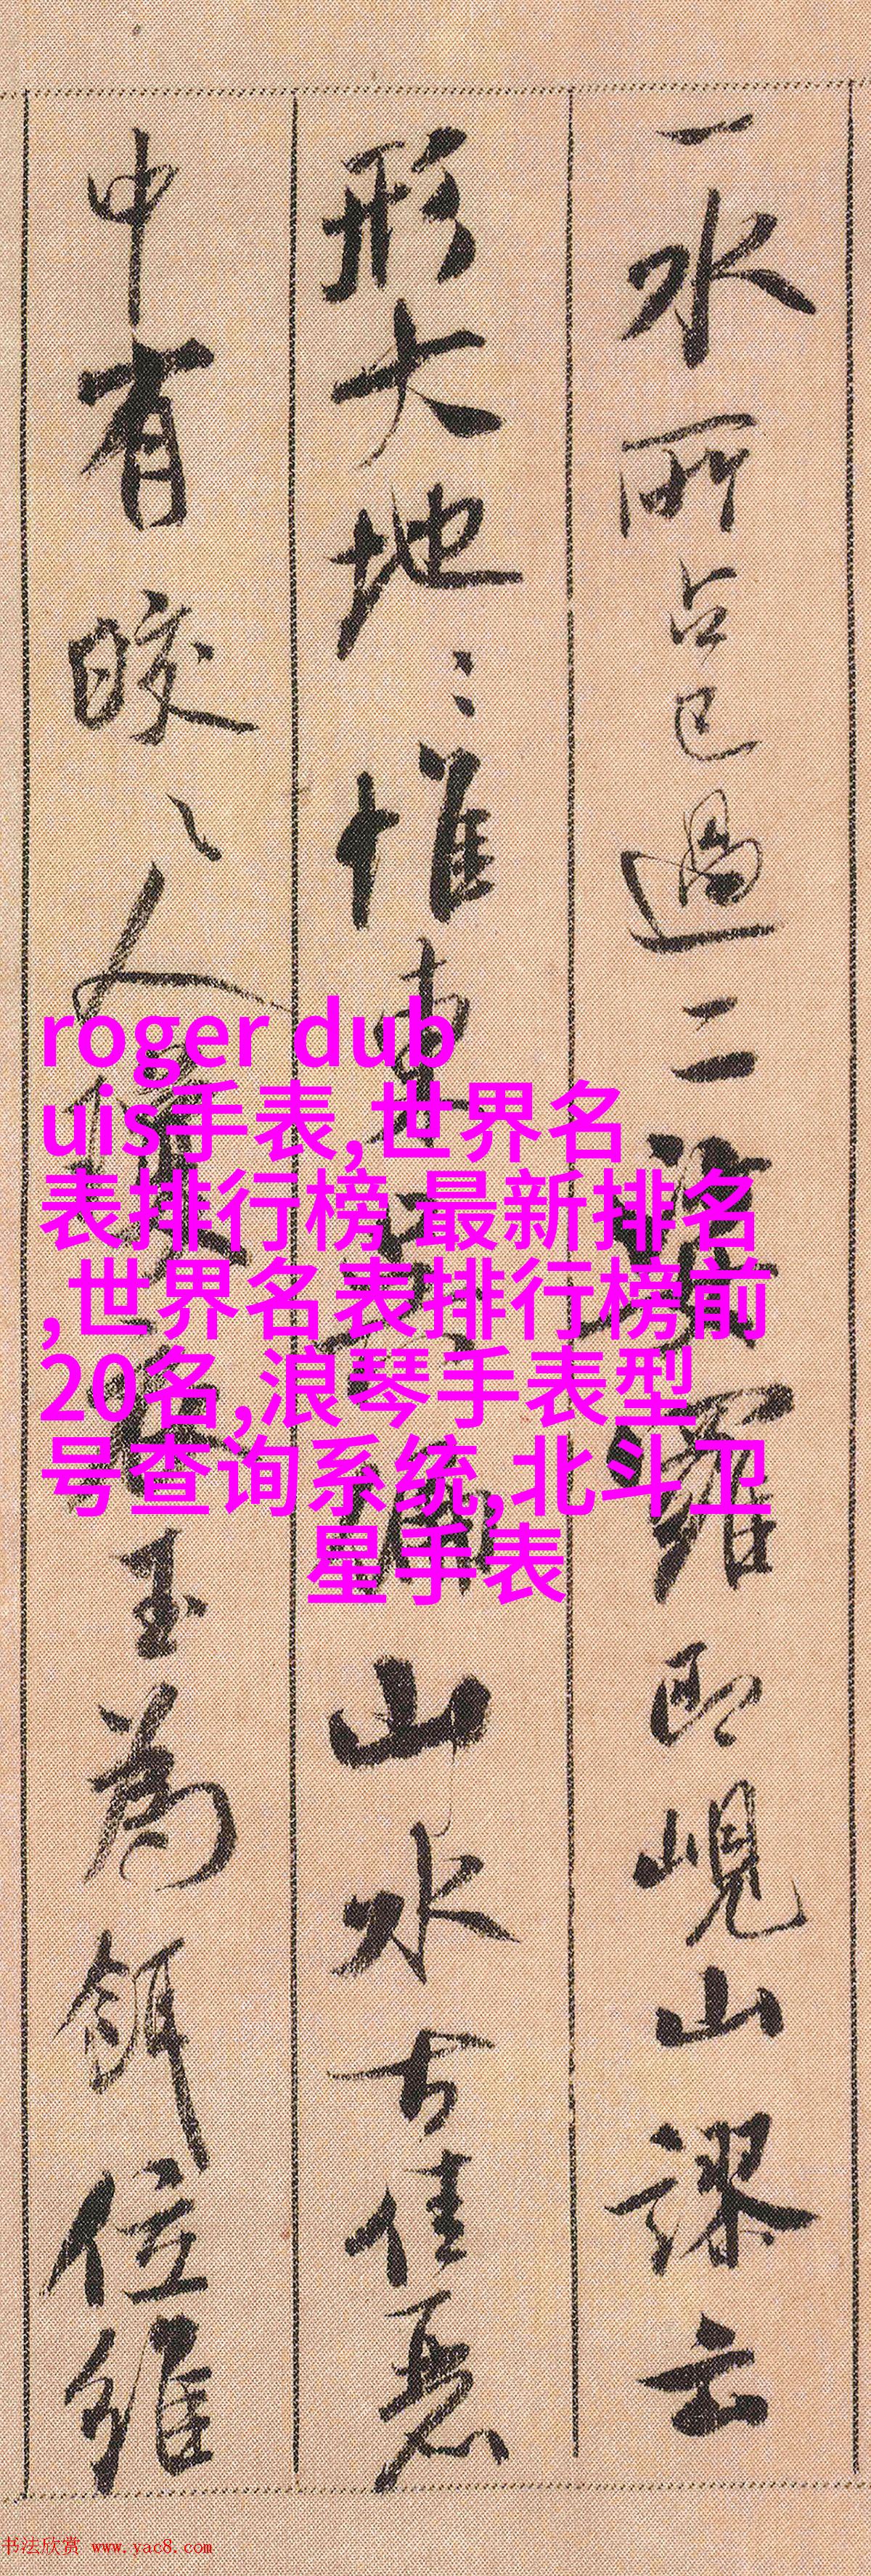 一水所占已過二
羅
即峴山謬云
形大地〻惟東
山水古佳惡
中有皎〻人
玉為餌位維
roger dub
uis手表,世界名
表排行榜 最新排名
,世界名表排行榜前
20名,浪琴手表型
号查询系统,北斗卫
星手表
书法欣赏 www.yac8.com